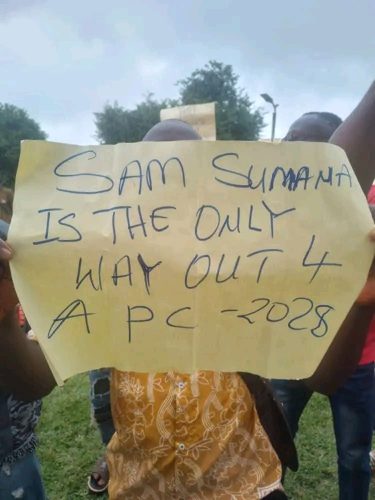 SAM SUMANA
IS THE ONLY
WAY OUT 4
APC-2028